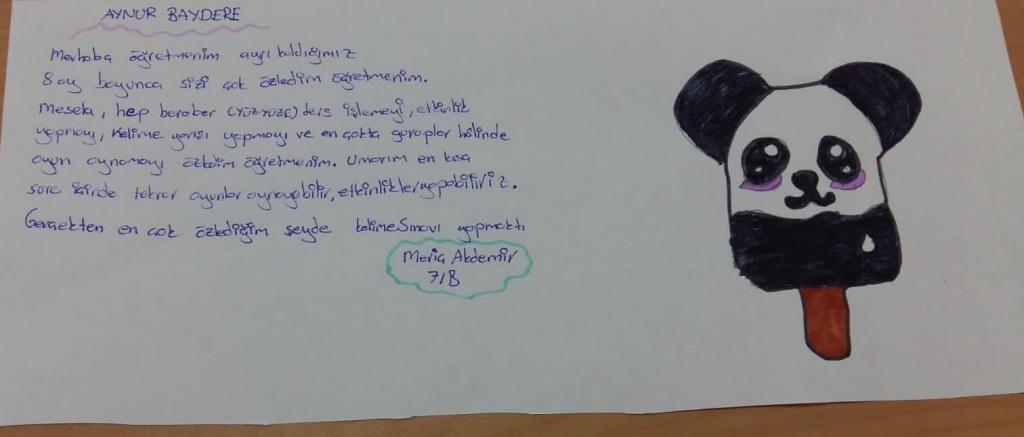 AYNUR BAYDERE
Merhaba öğretmenim ayrı kaldığımız
8 ay boyunca sizi çok özledim öğretmenim.
Mesela, hep beraber (YÜZYÜZE) ders işlemeyi, etkinlik
yapmayı, kelime yarışı yapmayı ve en çokta guruplar hâlinde
oyun oynamayı özledim öğretmenim. Umarım en kısa
süre içinde tekrar oyunlar oynayabilir, etkinlikler yapabiliriz.
Gerçekten en çok özlediğim şeyde kelime Sınavı yapmaktı
Meriç Akdemir
7/B